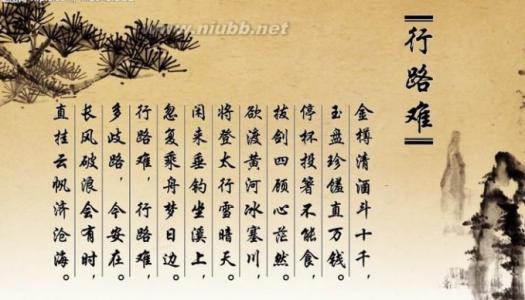 www.niubb.net
行路难
金樽清酒斗十千，
玉盘珍馐直万钱。
停杯投箸不能食，
拔剑四顾心茫然。
欲渡黄河冰塞川，
将登太行雪暗天。
闲来垂钓坐溪上，
忽复乘舟梦日边。
行路难，行路难，
多歧路，今安在。
长风破浪会有时，
直挂云帆济沧海。